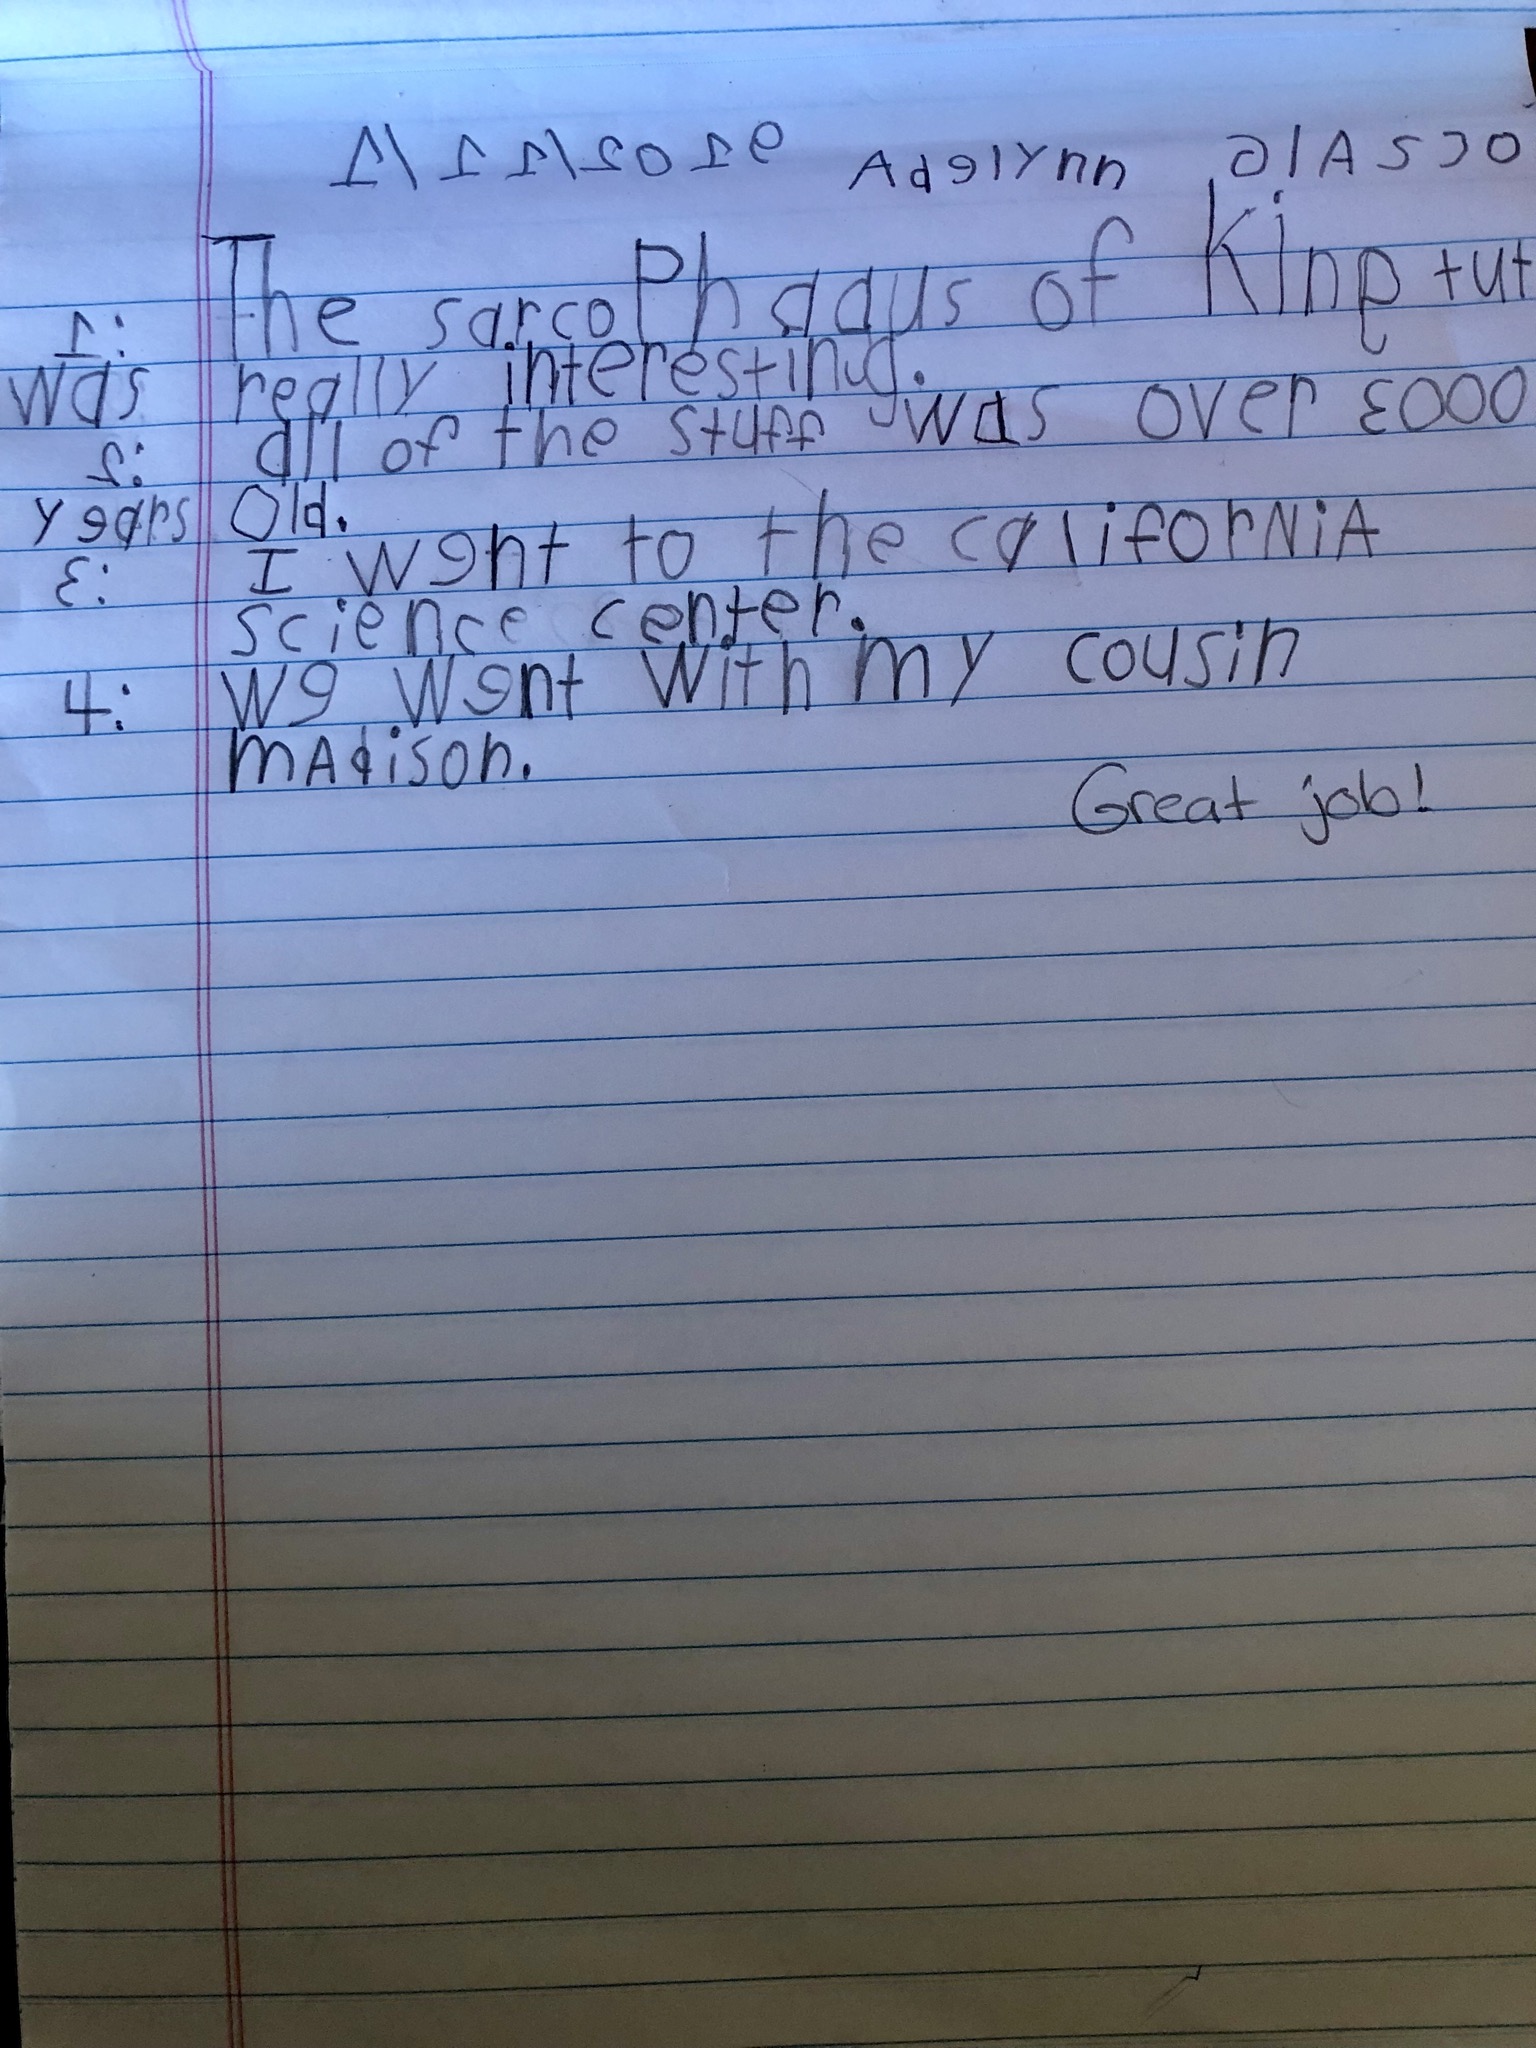 Adelynn GlASco
1: The sarcoPhagus of King tut
was really interesting.
2: all of the stuff was over 3000
years Old.
3: I went to the califorNiA
science center.
4: we went with my cousin
mAdison.
Great job!